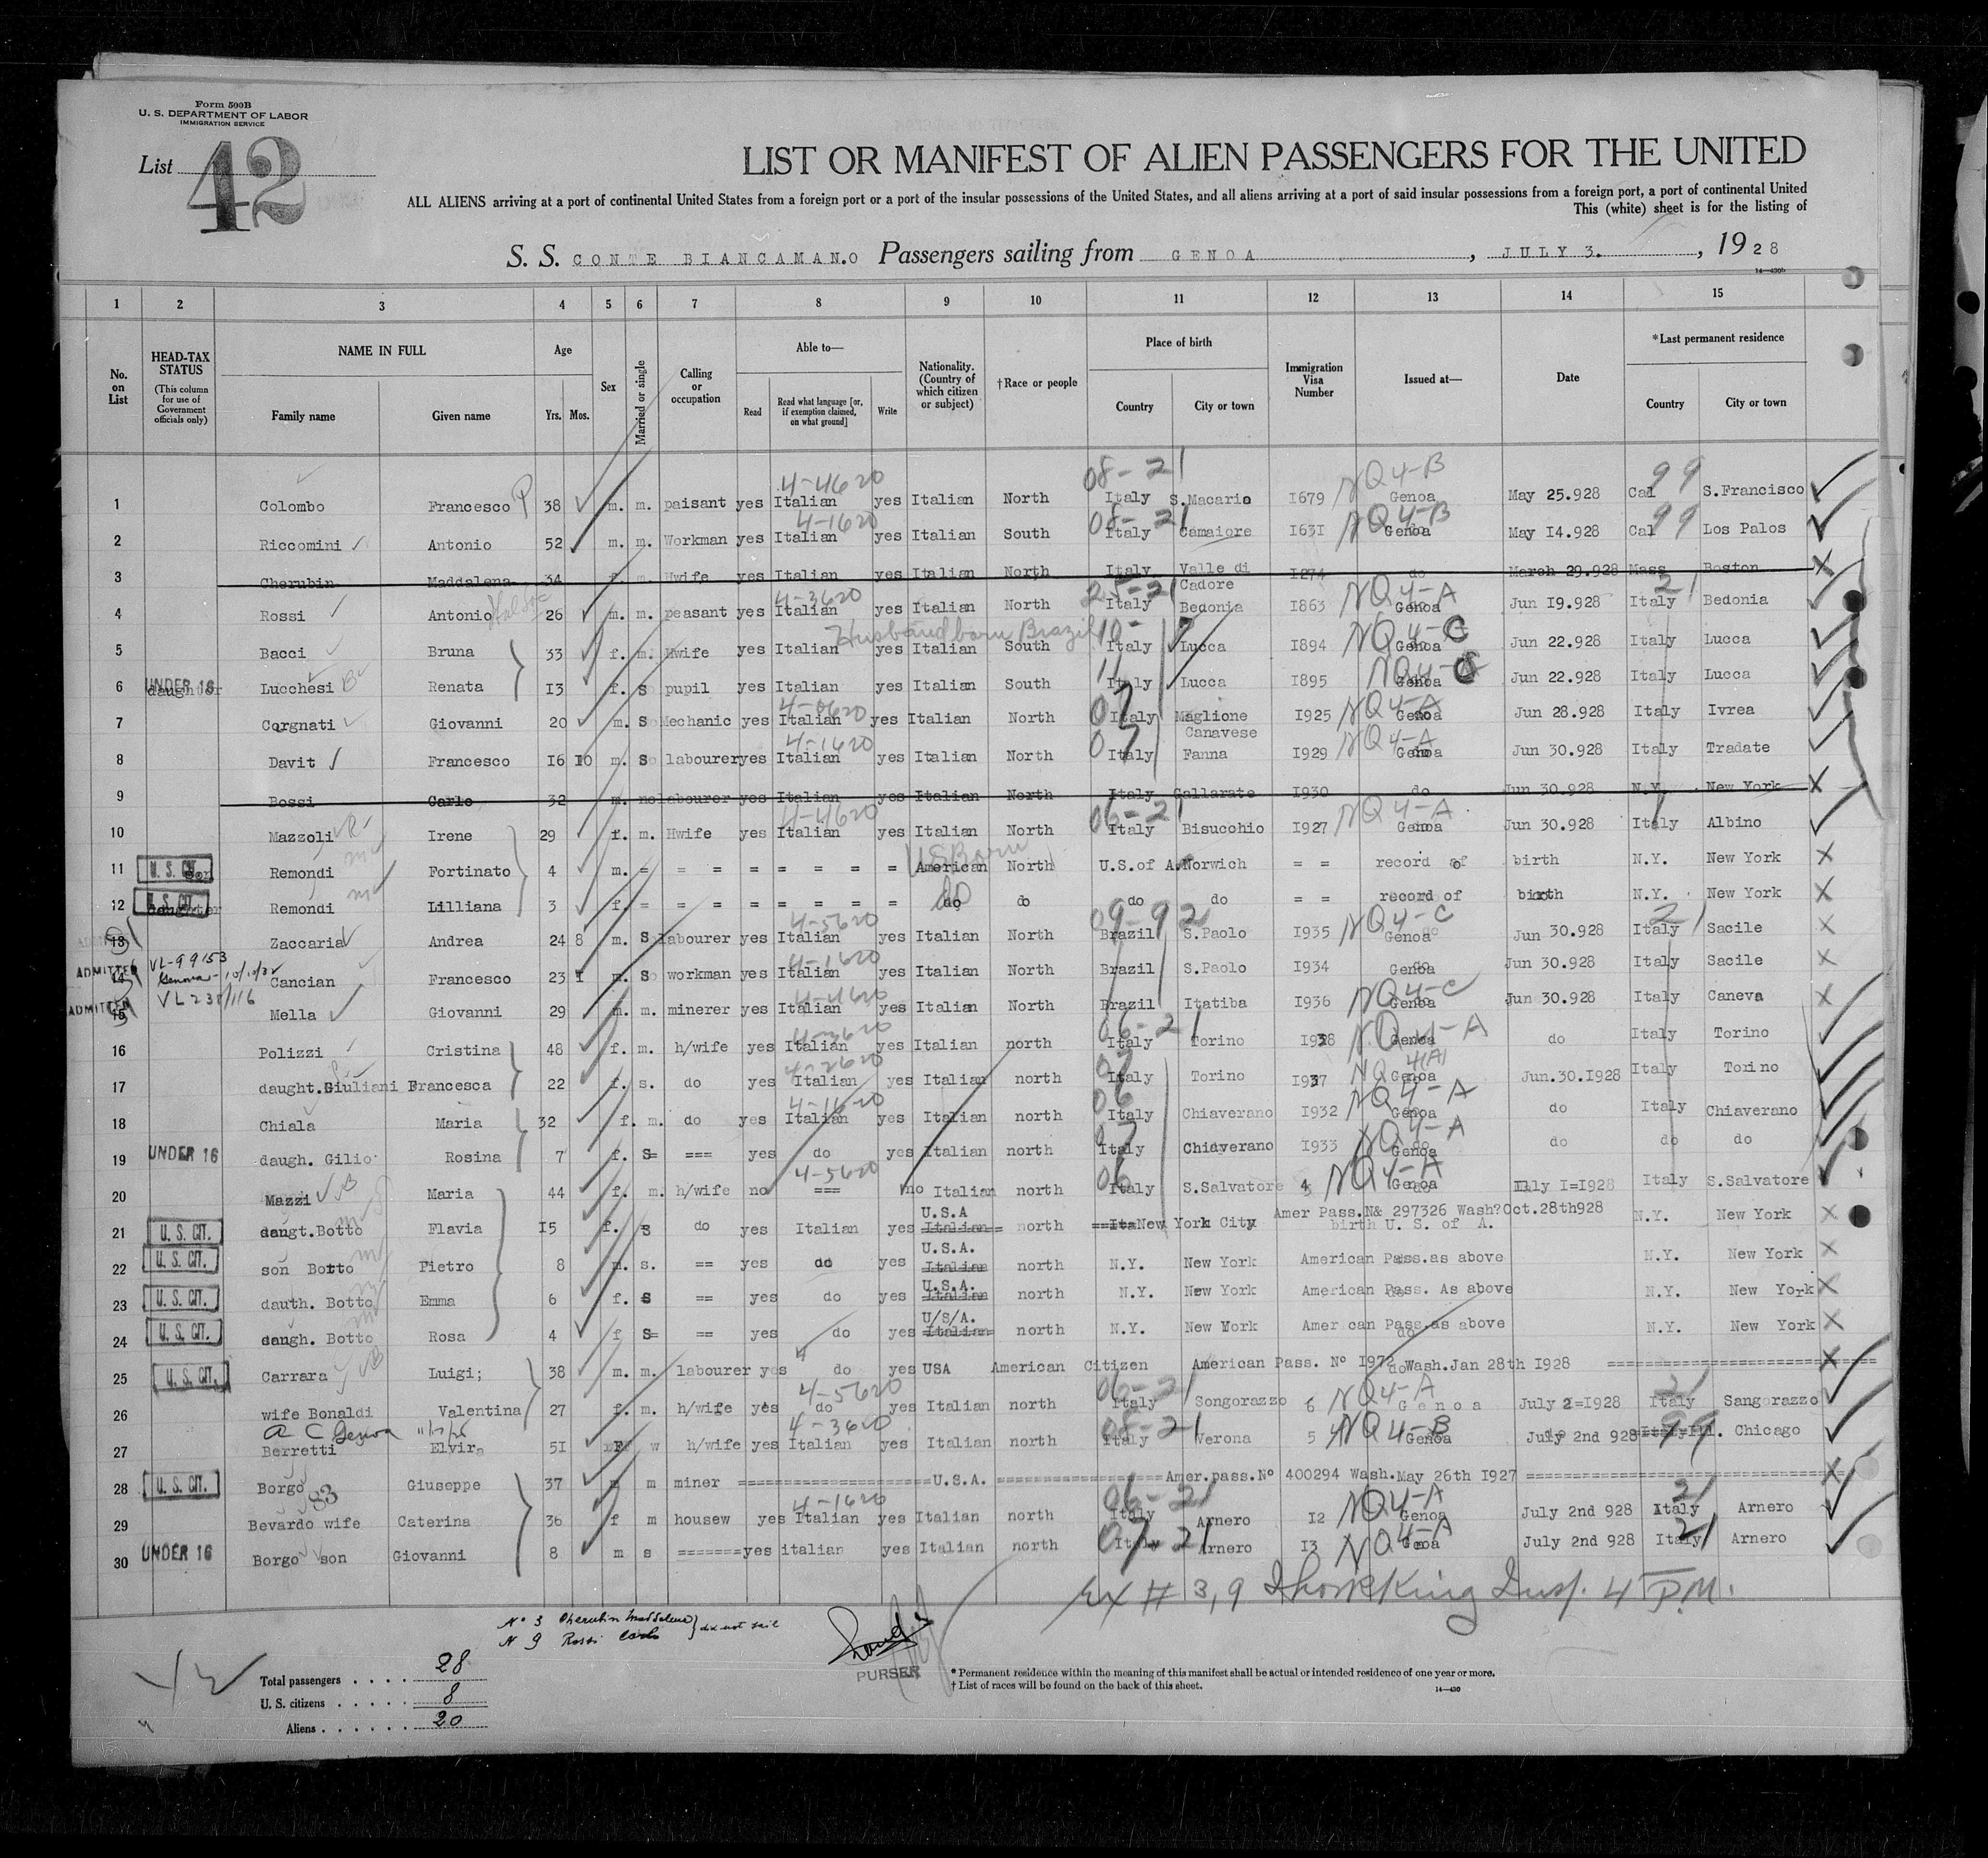 Form 500B
U. S. DEPARTMENT OF LABOR
IMMIGRATION SERVICE
List 42
LIST OR MANIFEST OF ALIEN PASSENGERS FOR THE UNITED
ALL ALIENS arriving at a port of continental United States from a foreign port or a port of the insular possessions of the United States, and all aliens arriving at a port of said insular possessions from a foreign port, a port of continental United
This (white) sheet is for the listing of
S. S. CONTE BIANCAMAN.O Passengers sailing from GENOA, JULY 3., 1928
14—430b
1 2 3 4 5 6 7 8 9 10 11 12 13 14 15
No. on List
HEAD-TAX STATUS (This column for use of Government officials only)
NAME IN FULL Family name Given name
Age Yrs. Mos.
Sex
Married or single
Calling or occupation
Able to— Read Read what language [or, if exemption claimed, on what ground] Write
Nationality. (Country of which citizen or subject)
†Race or people
Place of birth Country City or town
Immigration Visa Number
Issued at—
Date
*Last permanent residence Country City or town
1 Colombo Francesco P 38 m. m. paisant yes Italian 4-4620 yes Italian North 08-21 Italy S.Macario I679 NQ4-B Genoa May 25.928 Cal 99 S.Francisco
2 Riccomini Antonio 52 m. m. Workman yes Italian 4-1620 yes Italian South 08-21 Italy Camaiore I63I NQ4-B Genoa May I4.928 Cal 99 Los Palos
3 Cherubin Maddalena 34 f. m. Hwife yes Italian yes Italian North Italy Valle di Cadore I274 do March 29.928 Mass Boston
4 Rossi Antonio 26 m. m. peasant yes Italian 4-3620 yes Italian North 25-21 Italy Bedonia I863 NQ4-A Genoa Jun I9.928 Italy 21 Bedonia
Husband born Brazil
5 Bacci Bruna 33 f. m. Hwife yes Italian yes Italian South Italy Lucca I894 NQ4-C Genoa Jun 22.928 Italy Lucca
6 UNDER 16 daughter Lucchesi Renata I3 f. S pupil yes Italian yes Italian South Italy Lucca I895 Genoa Jun 22.928 Italy Lucca
7 Corgnati Giovanni 20 m. S Mechanic yes Italian 4-0620 yes Italian North 07 Italy Maglione Canavese I925 NQ4-A Genoa Jun 28.928 Italy Ivrea
8 Davit Francesco I6 I0 m. S labourer yes Italian 4-1620 yes Italian North 07 Italy Fanna I929 NQ4-A Genoa Jun 30.928 Italy Tradate
9 Rossi Carlo 32 m. labourer yes Italian yes Italian North Italy Gallarate I930 do Jun 30.928 N.Y. New York
10 Mazzoli Irene 29 f. m. Hwife yes Italian 4-4620 yes Italian North 06-21 Italy Bisuchio I927 NQ4-A Genoa Jun 30.928 Italy Albino
11 U. S. CIT. son Remondi Fortinato 4 m. = = = = = = = = American US Born North U.S.of A. Norwich = = record of birth N.Y. New York
12 U. S. CIT. daughter Remondi Lilliana 3 f. = = = = = = = = do do do do = = record of birth N.Y. New York
13 Zaccaria Andrea 24 8 m. S labourer yes Italian 4-5620 yes Italian North 09-92 Brazil S.Paolo I935 NQ4-C Genoa Jun 30.928 Italy 21 Sacile
14 ADMITTED VL-99153 Genova-10/10/32 Cancian Francesco 23 I m. S workman yes Italian 4-1620 yes Italian North Brazil S.Paolo I934 Genoa Jun 30.928 Italy Sacile
15 ADMITTED VL238/116 Mella Giovanni 29 m. m. minerer yes Italian 4-4620 yes Italian North Brazil Itatiba I936 NQ4-C Genoa Jun 30.928 Italy Caneva
16 Polizzi Cristina 48 f. m. h/wife yes Italian 4-3620 yes Italian north 06-21 Italy Torino NQ4-A Genoa do Italy Torino
17 daught.Giuliani Francesca 22 f. s. do yes Italian 4-2620 yes Italian north 07 Italy Torino I937 Genoa Jun.30.I928 Italy Torino
18 Chiala Maria 32 f. m. do yes Italian yes Italian north 06 Italy Chiaverano I932 NQ4-A Genoa do Italy Chiaverano
19 UNDER 16 daugh. Gilio Rosina 7 f. S= === yes do yes Italian north 07 Italy Chiaverano I933 NQ4-A Genoa do do do
20 Mazzi Maria 44 f. m. h/wife no === 4-5620 no Italian north 06 Italy S.Salvatore 4 NQ4-A Genoa I=I928 Italy S.Salvatore
21 U. S. CIT. daugt.Botto Flavia I5 f. s do yes Italian yes U.S.A Italian== north ==Ita New York City Amer Pass.N& 297326 Wash?Oct.28th928 birth U. S. of A. N.Y. New York
22 U. S. CIT. son Botto Pietro 8 m. s. == yes do yes U.S.A. Italian north N.Y. New York American Pass.as above N.Y. New York
23 U. S. CIT. dauth. Botto Emma 6 f. S == yes do yes U.S.A. Italian north N.Y. New York American Pass. As above N.Y. New York
24 U. S. CIT. daugh. Botto Rosa 4 f S= == yes do yes U/S/A. Italian= north N.Y. New York Amer can Pass.as above N.Y. New York
25 U. S. CIT. Carrara Luigi; 38 m. m. labourer yes do yes USA American Citizen American Pass. Nº I972 Wash.Jan 28th I928 ====
26 wife Bonaldi Valentina 27 f. m. h/wife yes do 4-5620 yes Italian north 06-21 Italy Songorazzo 6 NQ4-A Genoa July 2=I928 Italy 21 Sangorazzo
27 Berretti Elvira 5I F w h/wife yes Italian 4-3620 yes Italian north 08-21 Italy Verona 5 NQ4-B Genoa July 2nd 928 Italy Ill. 99 Chicago
28 U. S. CIT. Borgo Giuseppe 37 m m miner ==== U.S.A. ==== Amer.pass.Nº 400294 Wash.May 26th I927 ====
29 Bevardo wife Caterina 36 f m housew yes Italian 4-1620 yes Italian north 06-21 Italy Arnero I2 NQ4-A Genoa July 2nd 928 Italy 21 Arnero
30 UNDER 16 Borgo son Giovanni 8 m s ======= yes italian yes Italian north 07-21 Italy Arnero I3 NQ4-A Genoa July 2nd 928 Italy 21 Arnero
Ex # 3, 9 Insp. 4 P.M.
Nº 3 Cherubin Maddalena } did not sail
N 9 Rossi Carlo
PURSER
Total passengers . . . . 28
U. S. citizens . . . . . 8
Aliens . . . . . . 20
* Permanent residence within the meaning of this manifest shall be actual or intended residence of one year or more.
† List of races will be found on the back of this sheet.
14—430